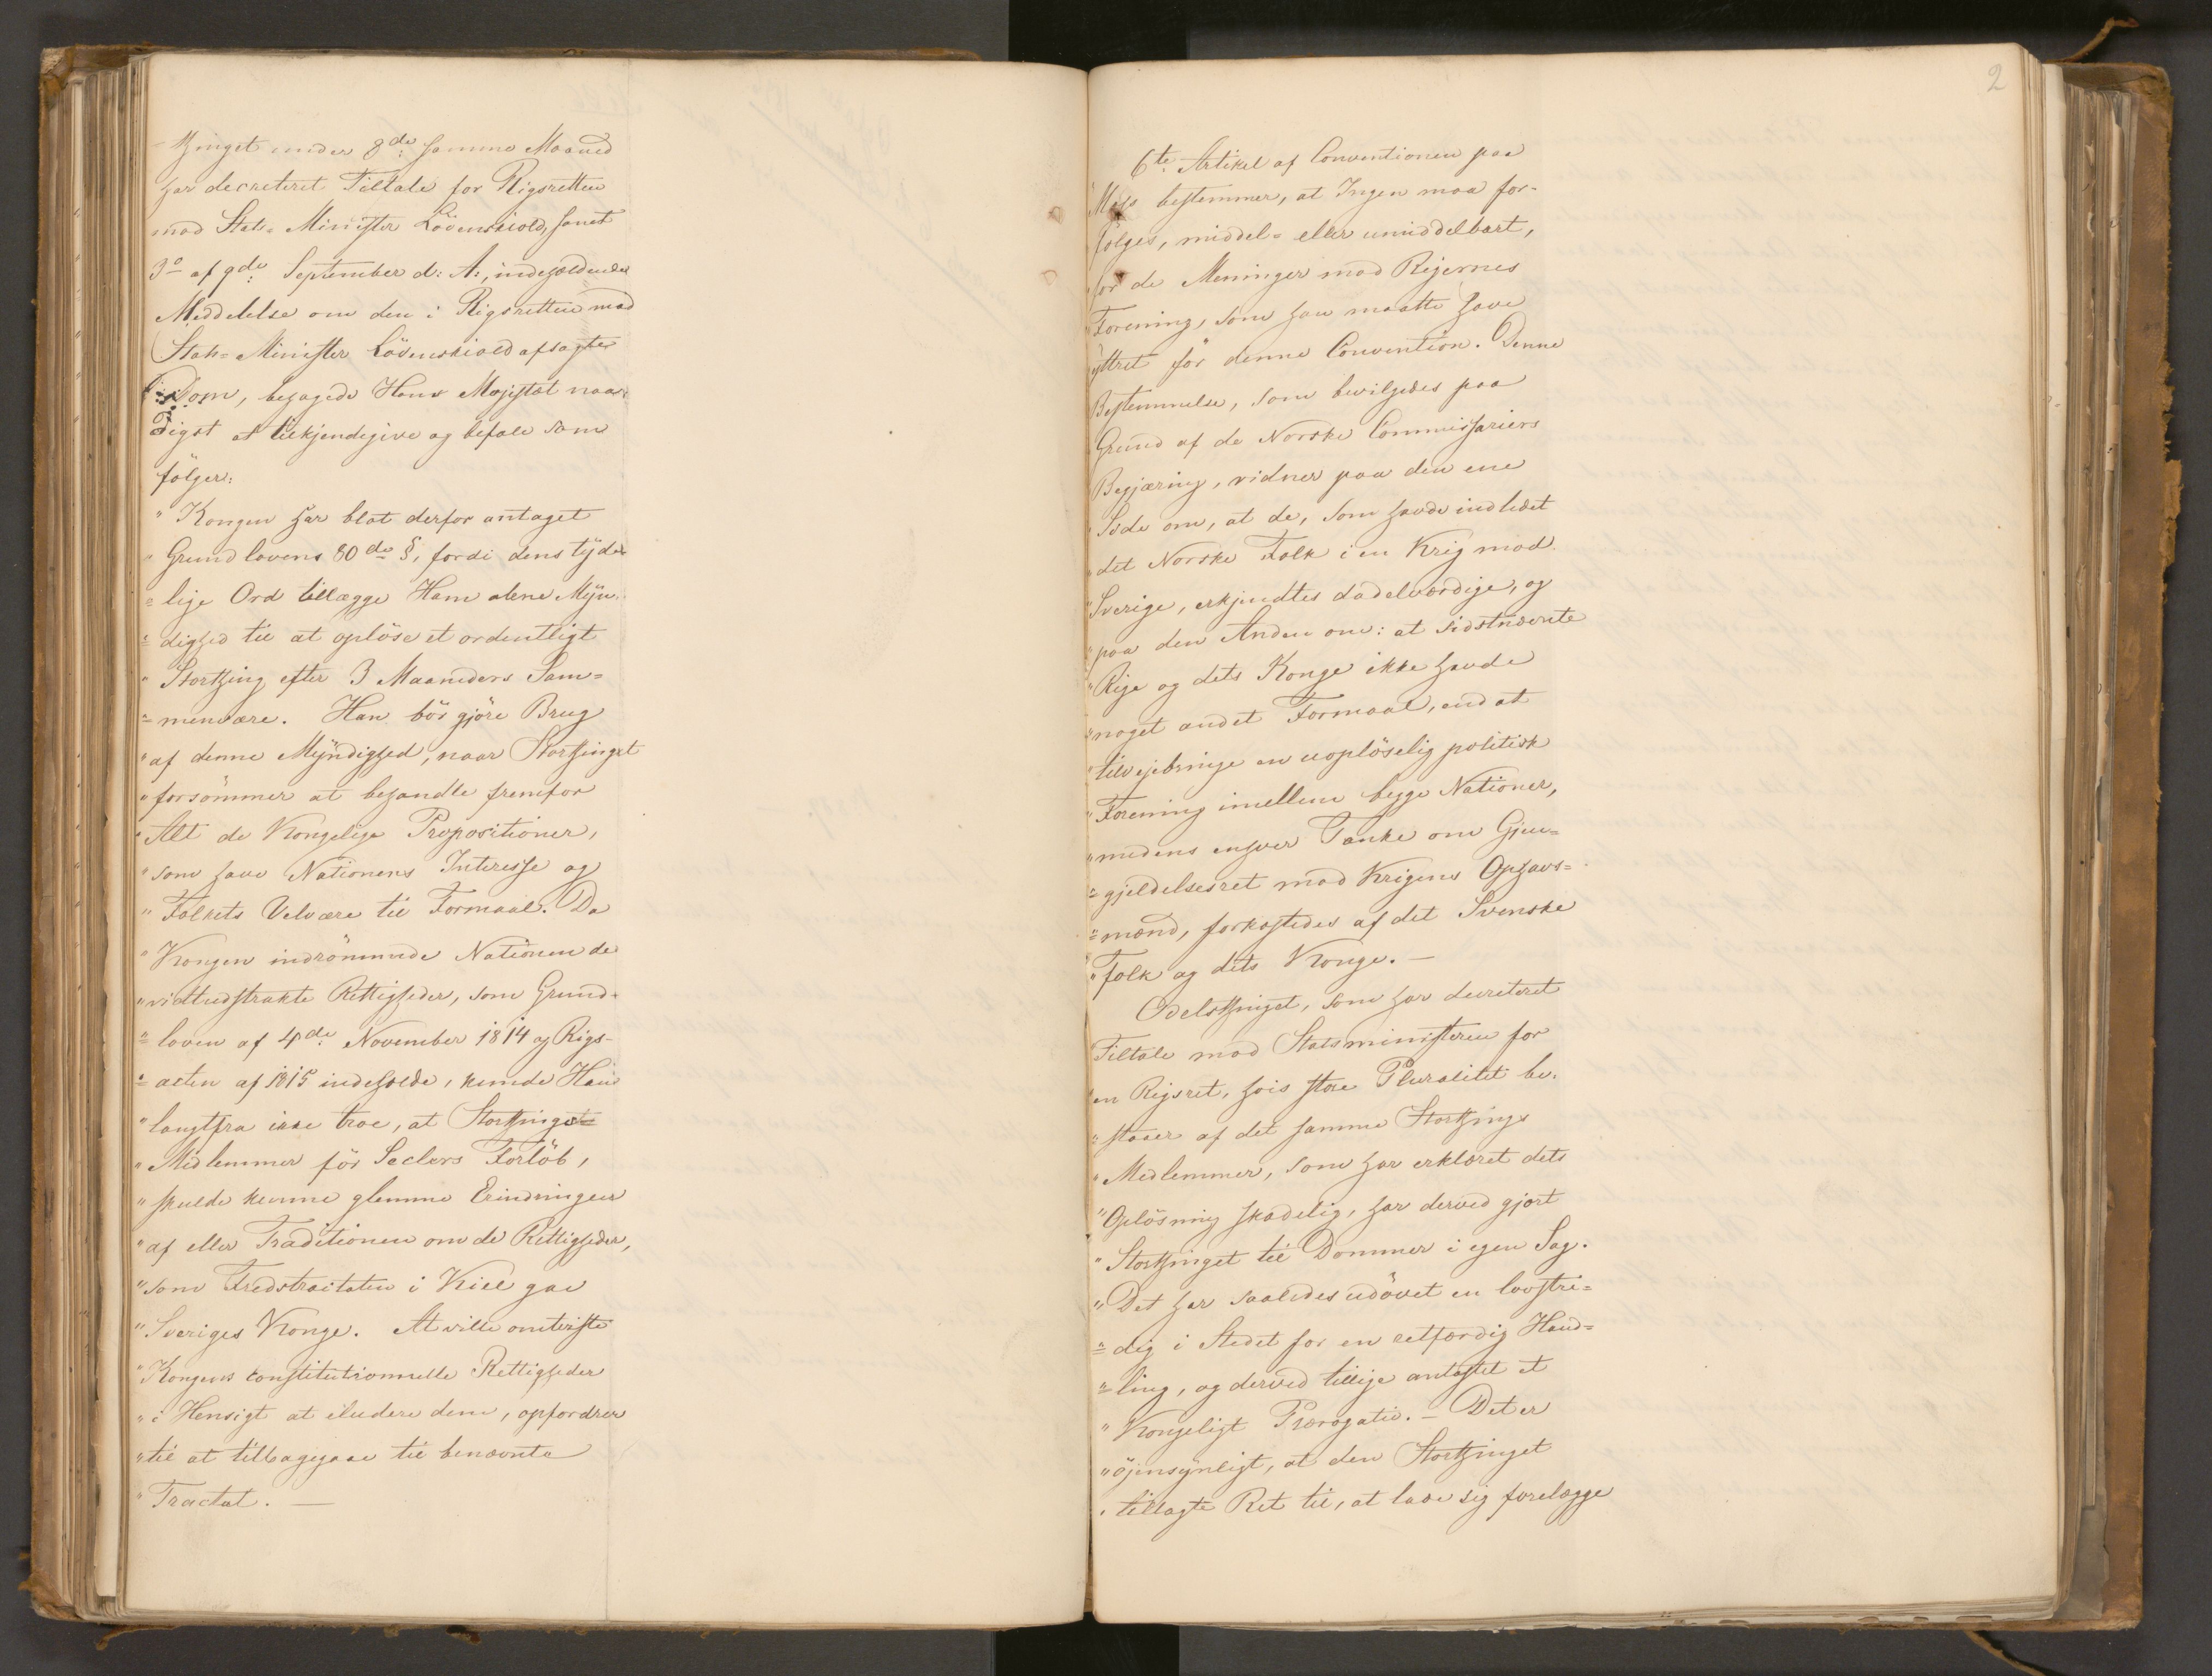 thinget under 8de: samme Maaned
har decreteret Tiltale for Rigsretten
mod Stats-Minister Lövenskiold, samt
3º af 9de: September d: A:, indeholdende
Meddelelse om den i Rigsretten mod
Stats-Minister Lövenskiold afsagte
Dom, behagede Hans Majestæt naa-
digst at tilkjendegive og befale som
følger:
" Kongen har blot derfor antaget
" Grundlovens 80de §, fordi dens tyde-
" lige Ord tillægge Ham alene Myn-
" dighed til at oplöse et ordentligt
" Storthing efter 3 Maaneders Sam-
" menvære. Han bör gjöre Brug
" af denne Myndighed, naar Storthinget
" forsömmer at behandle fremfor
" Alt de Kongelige Propositioner,
" som have Nationens Interesse og
" Folkets Velvære til Formaal. Da
" Kongen indrömmede Nationen de
" vidtudstrakte Rettigheder, som Grund-
" loven af 4de: November 1814 og Rigs-
" acten af 1815 indeholde, kunde Han
" langtfra ikke troe, at Storthingets
" Medlemmer för Seclers Forlöb,
" skulde kunne glemme Erindringen
" af eller Traditionen om de Rettigheder,
" som Fredstractaten i Kiel gav
" Sveriges Konge. At ville omtviste
" Kongens constitutionnelle Rettigheder
" i Hensigt at eludere dem, opfordrer
" til at tilbagegaae til benævnte
" Tractat. —
2
6te Artikel af Conventionen paa
" Moss bestemmer, at Ingen maa for-
" følges, middel- eller umiddelbart,
" for de Meninger mod Rigernes
" Forening, som han maatte have
" yttret för denne Convention. Denne
" Bestemmelse, som bevilgedes paa
" Grund af de Norske Commissariers
" Begjæring, vidner paa den ene
" Side om, at de, som havde indledet
" det Norske Folk i en Krig mod
" Sverige, erkjendtes dadelværdige, og
" paa den Anden om: at sidstnævnte
" Rige og dets Konge ikke havde
" noget andet Formaal, end at
" tilvejebringe en uoplöselig politisk
" Forening imellem begge Nationer,
" medens enhver Tanke om Gjen-
" gjeldelsesret mod Krigens Ophavs-
" mænd, forkastedes af det Svenske
" Folk og dets Konge. —
Odelsthinget, som har decreteret
" Tiltale mod Statsministeren for
" en Rigsret, hvis store Pluralitet be-
" staaer af det samme Storthings
" Medlemmer, som har erklæret dets
" Oplösning skadelig, har derved gjort
" Storthinget til Dommer i egen Sag.
" Det har saaledes udövet en lovstri-
" dig i Stedet for en retfærdig Hand-
" ling, og derved tillige antastet et
" Kongeligt Prærogativ. — Det er
" öjensynligt, at den Storthinget
" tillagte Ret til, at lade sig forelægge